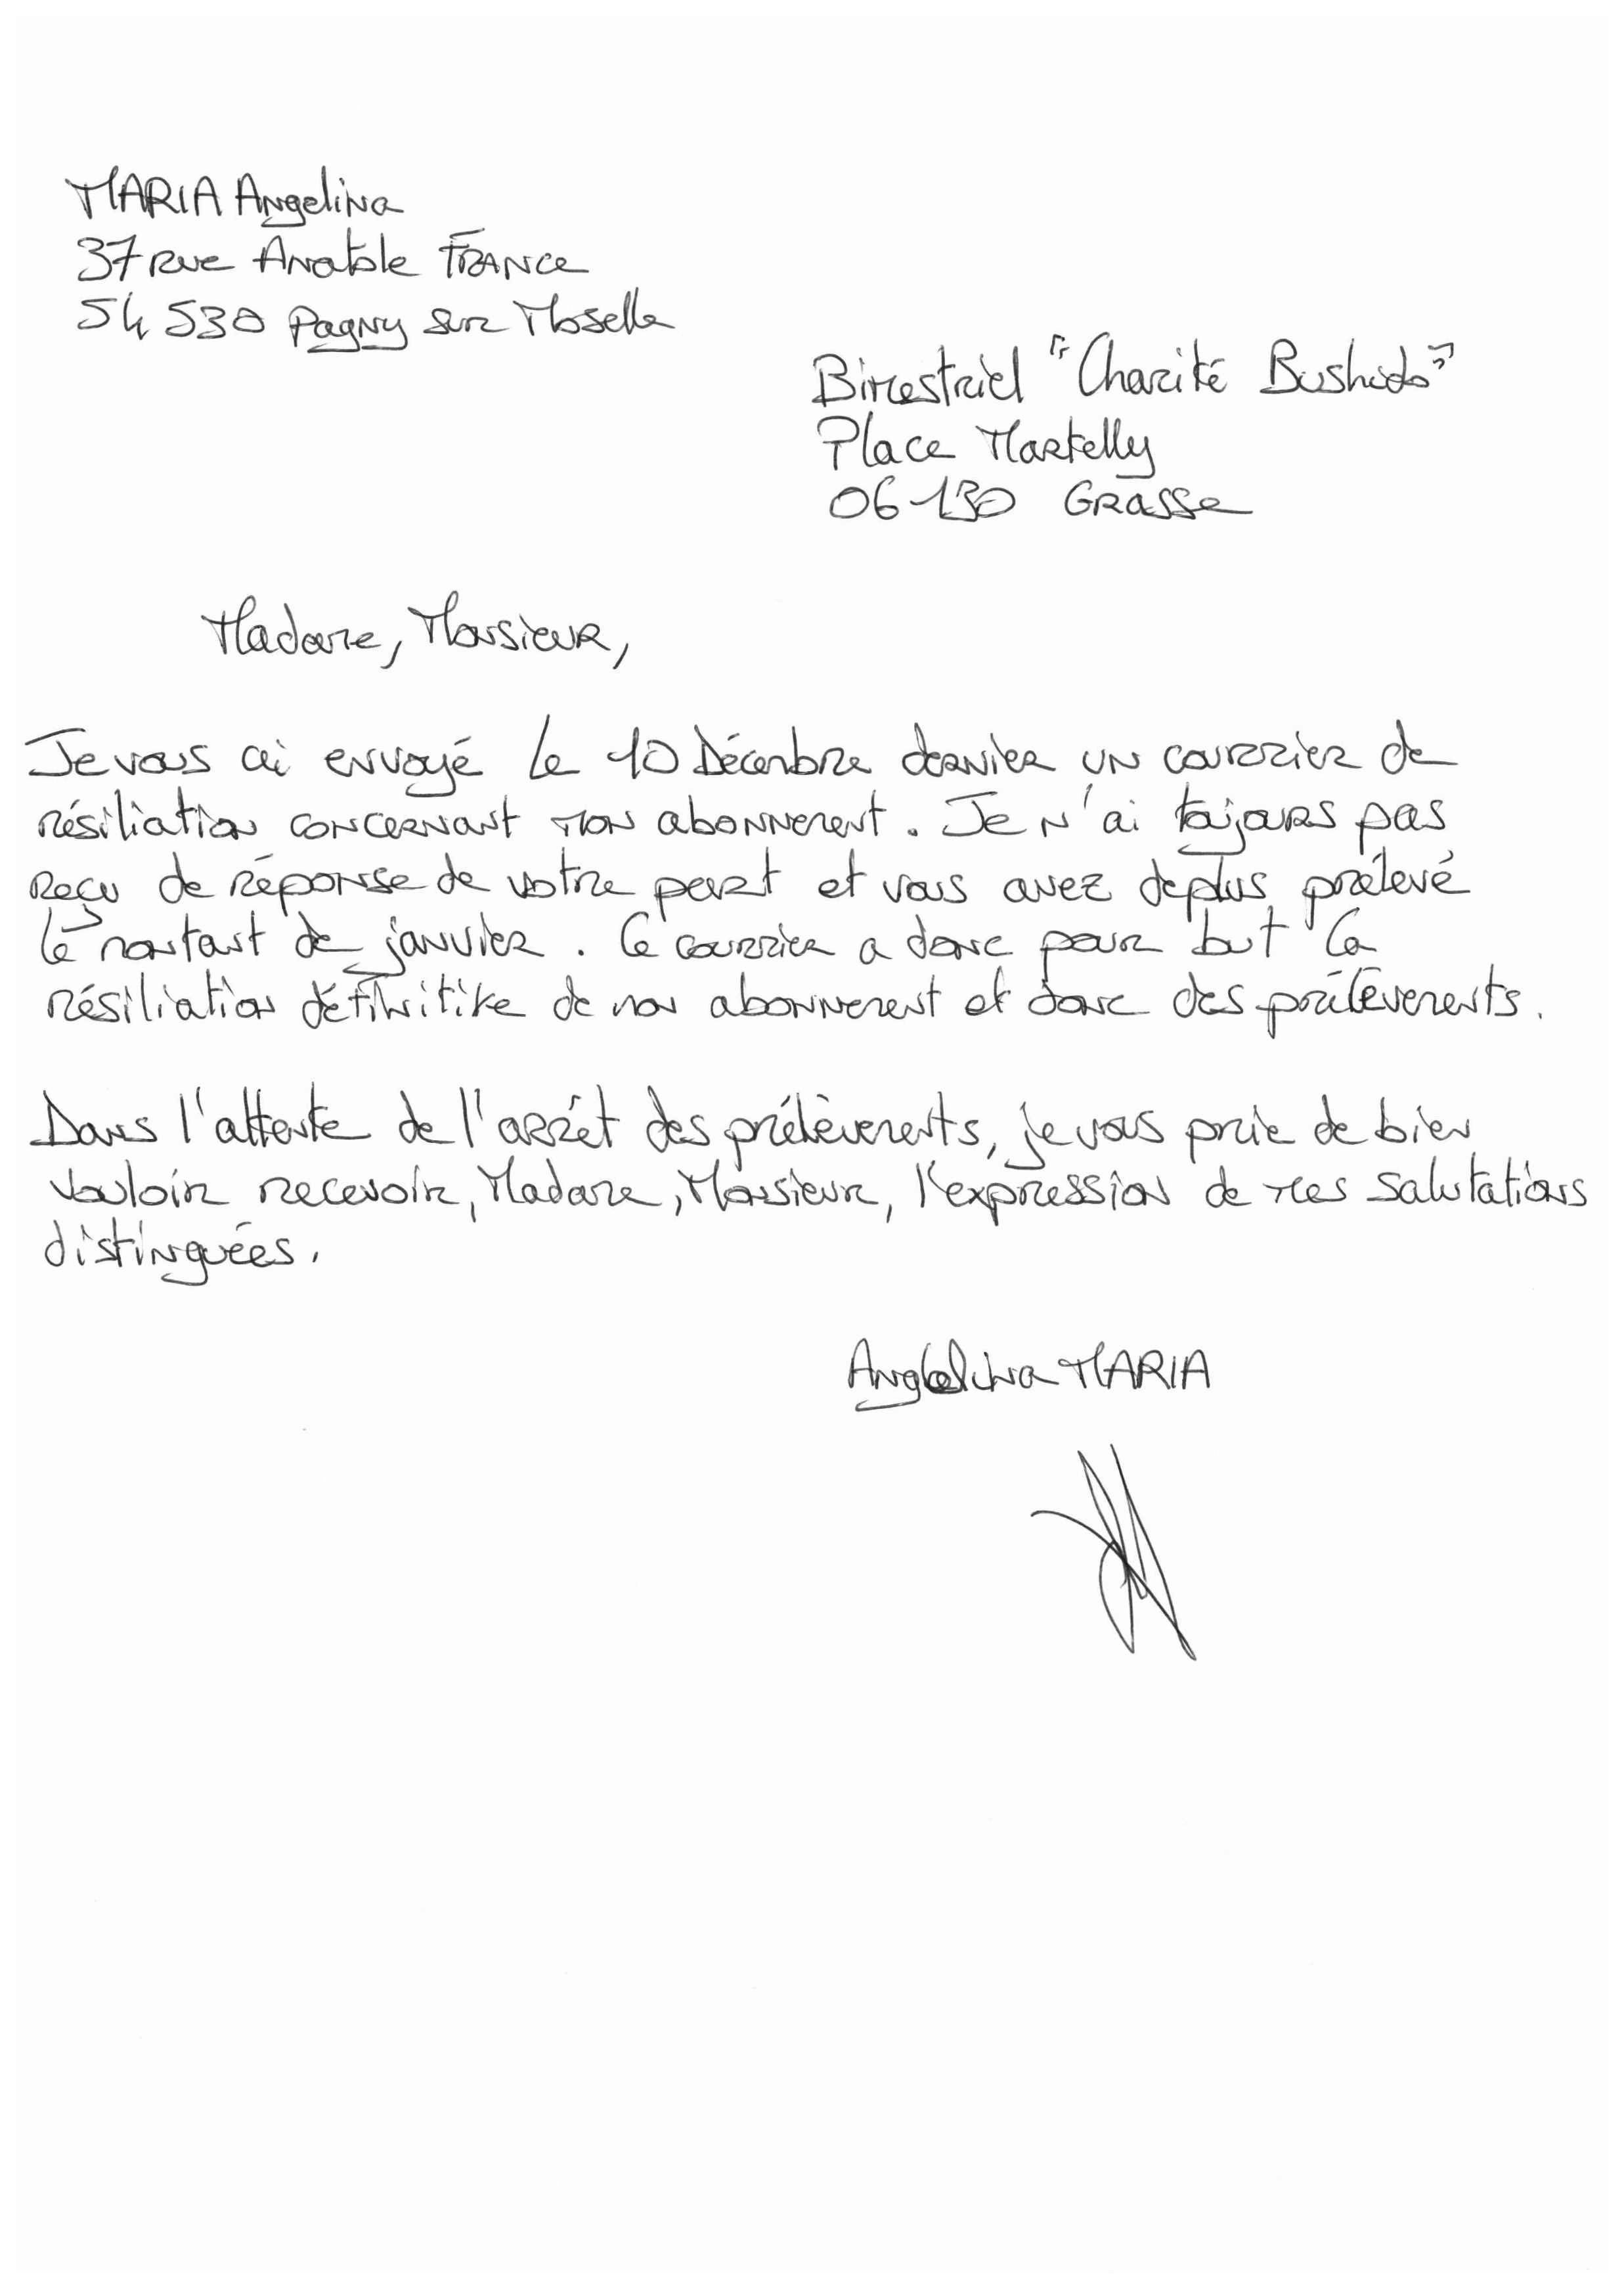 MARIA Angelina
37 rue Anatole FRANCE
54 530 Pagny sur Moselle
Bimestriel "Charité Bushido"
Place Martelly
06 130 Grasse
Madame, Monsieur,
Je vous ai envoyé le 10 Décembre dernier un courrier de
résiliation concernant mon abonnement. Je n'ai toujours pas
reçu de réponse de votre part et vous avez de plus prélevé
le montant de janvier. Ce courrier a donc pour but la
résiliation définitive de mon abonnement et donc des prélèvements.
Dans l'attente de l'arrêt des prélèvements, je vous prie de bien
vouloir recevoir, Madame, Monsieur, l'expression de mes salutations
distinguées.
Angelina MARIA